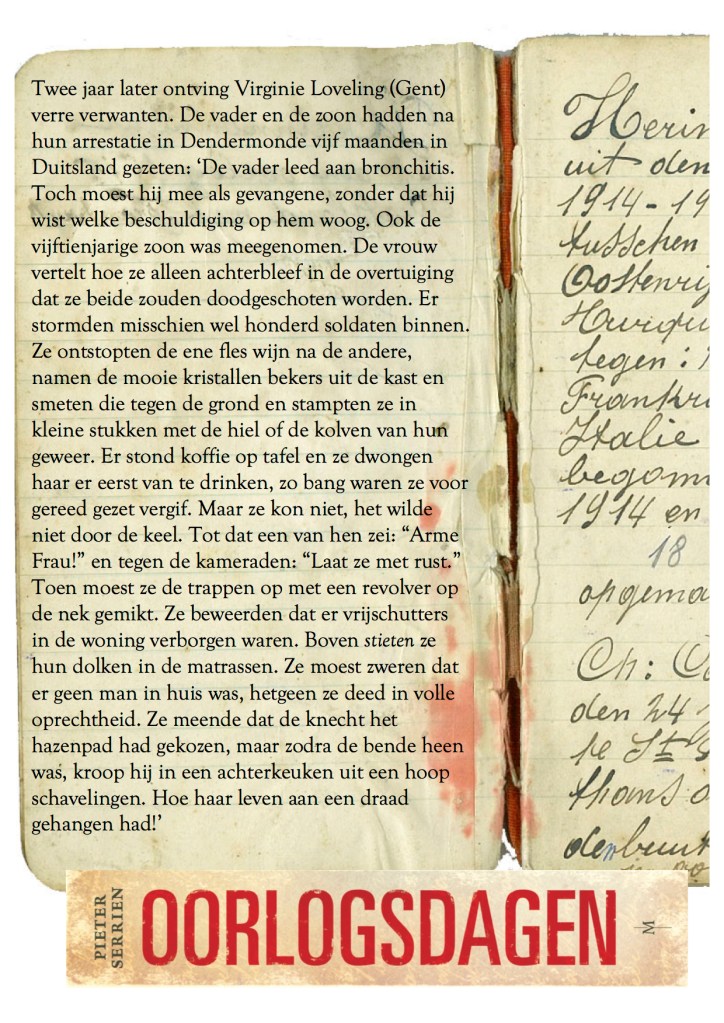 Twee jaar later ontving Virginie Loveling (Gent)
verre verwanten. De vader en de zoon hadden na
hun arrestatie in Dendermonde vijf maanden in
Duitsland gezeten: ‘De vader leed aan bronchitis.
Toch moest hij mee als gevangene, zonder dat hij
wist welke beschuldiging op hem woog. Ook de
vijftienjarige zoon was meegenomen. De vrouw
vertelt hoe ze alleen achterbleef in de overtuiging
dat ze beide zouden doodgeschoten worden. Er
stormden misschien wel honderd soldaten binnen.
Ze ontstopten de ene fles wijn na de andere,
namen de mooie kristallen bekers uit de kast en
smeten die tegen de grond en stampten ze in
kleine stukken met de hiel of de kolven van hun
geweer. Er stond koffie op tafel en ze dwongen
haar er eerst van te drinken, zo bang waren ze voor
gereed gezet vergif. Maar ze kon niet, het wilde
niet door de keel. Tot dat een van hen zei: “Arme
Frau!” en tegen de kameraden: “Laat ze met rust.”
Toen moest ze de trappen op met een revolver op
de nek gemikt. Ze beweerden dat er vrijschutters
in de woning verborgen waren. Boven stieten ze
hun dolken in de matrassen. Ze moest zweren dat
er geen man in huis was, hetgeen ze deed in volle
oprechtheid. Ze meende dat de knecht het
hazenpad had gekozen, maar zodra de bende heen
was, kroop hij in een achterkeuken uit een hoop
schavelingen. Hoe haar leven aan een draad
gehangen had!’
Herin
uit den
1914-19
tusschen
Oostenrij
tegen:
Frankr
Italie
begonn
1914 en
18
opgema
Ch:
den 24
te St
thans
PIETER
SERRIEN
OORLOGSDAGEN
M